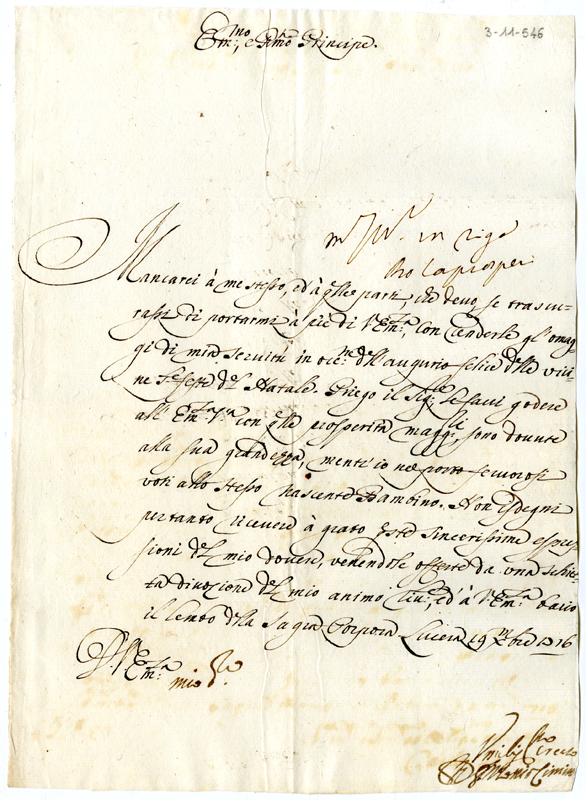 3-11-546
Em:mo, e Rmo Principe.
in riga
Mancarei à me stesso, ed à qlle parti, che devo se trascu-
rassi di portarmi à piè di V. Em:za, con renderle gl'omag-
gi di mia servitù in occ:ne dell'augurio felice delle vici-
ne S:te feste del Natale. Priego il Sig:re le facci godere
all' Em:za V:ra con qlle prosperità magg:ri sono dovute
alla sua grandezza, mentr'io ne porto fervorosi
voti allo stesso nascente Bambino. Non isdegni
pertanto ricevere à grato queste sincerissime espres-
sioni del mio dovere, venendole offerte da una schiet-
ta divozione del mio animo, ed à V. Em:za bacio
il lembo della Sagra Porpora Lucera 19 Xbre 1716
Di V. Em:za